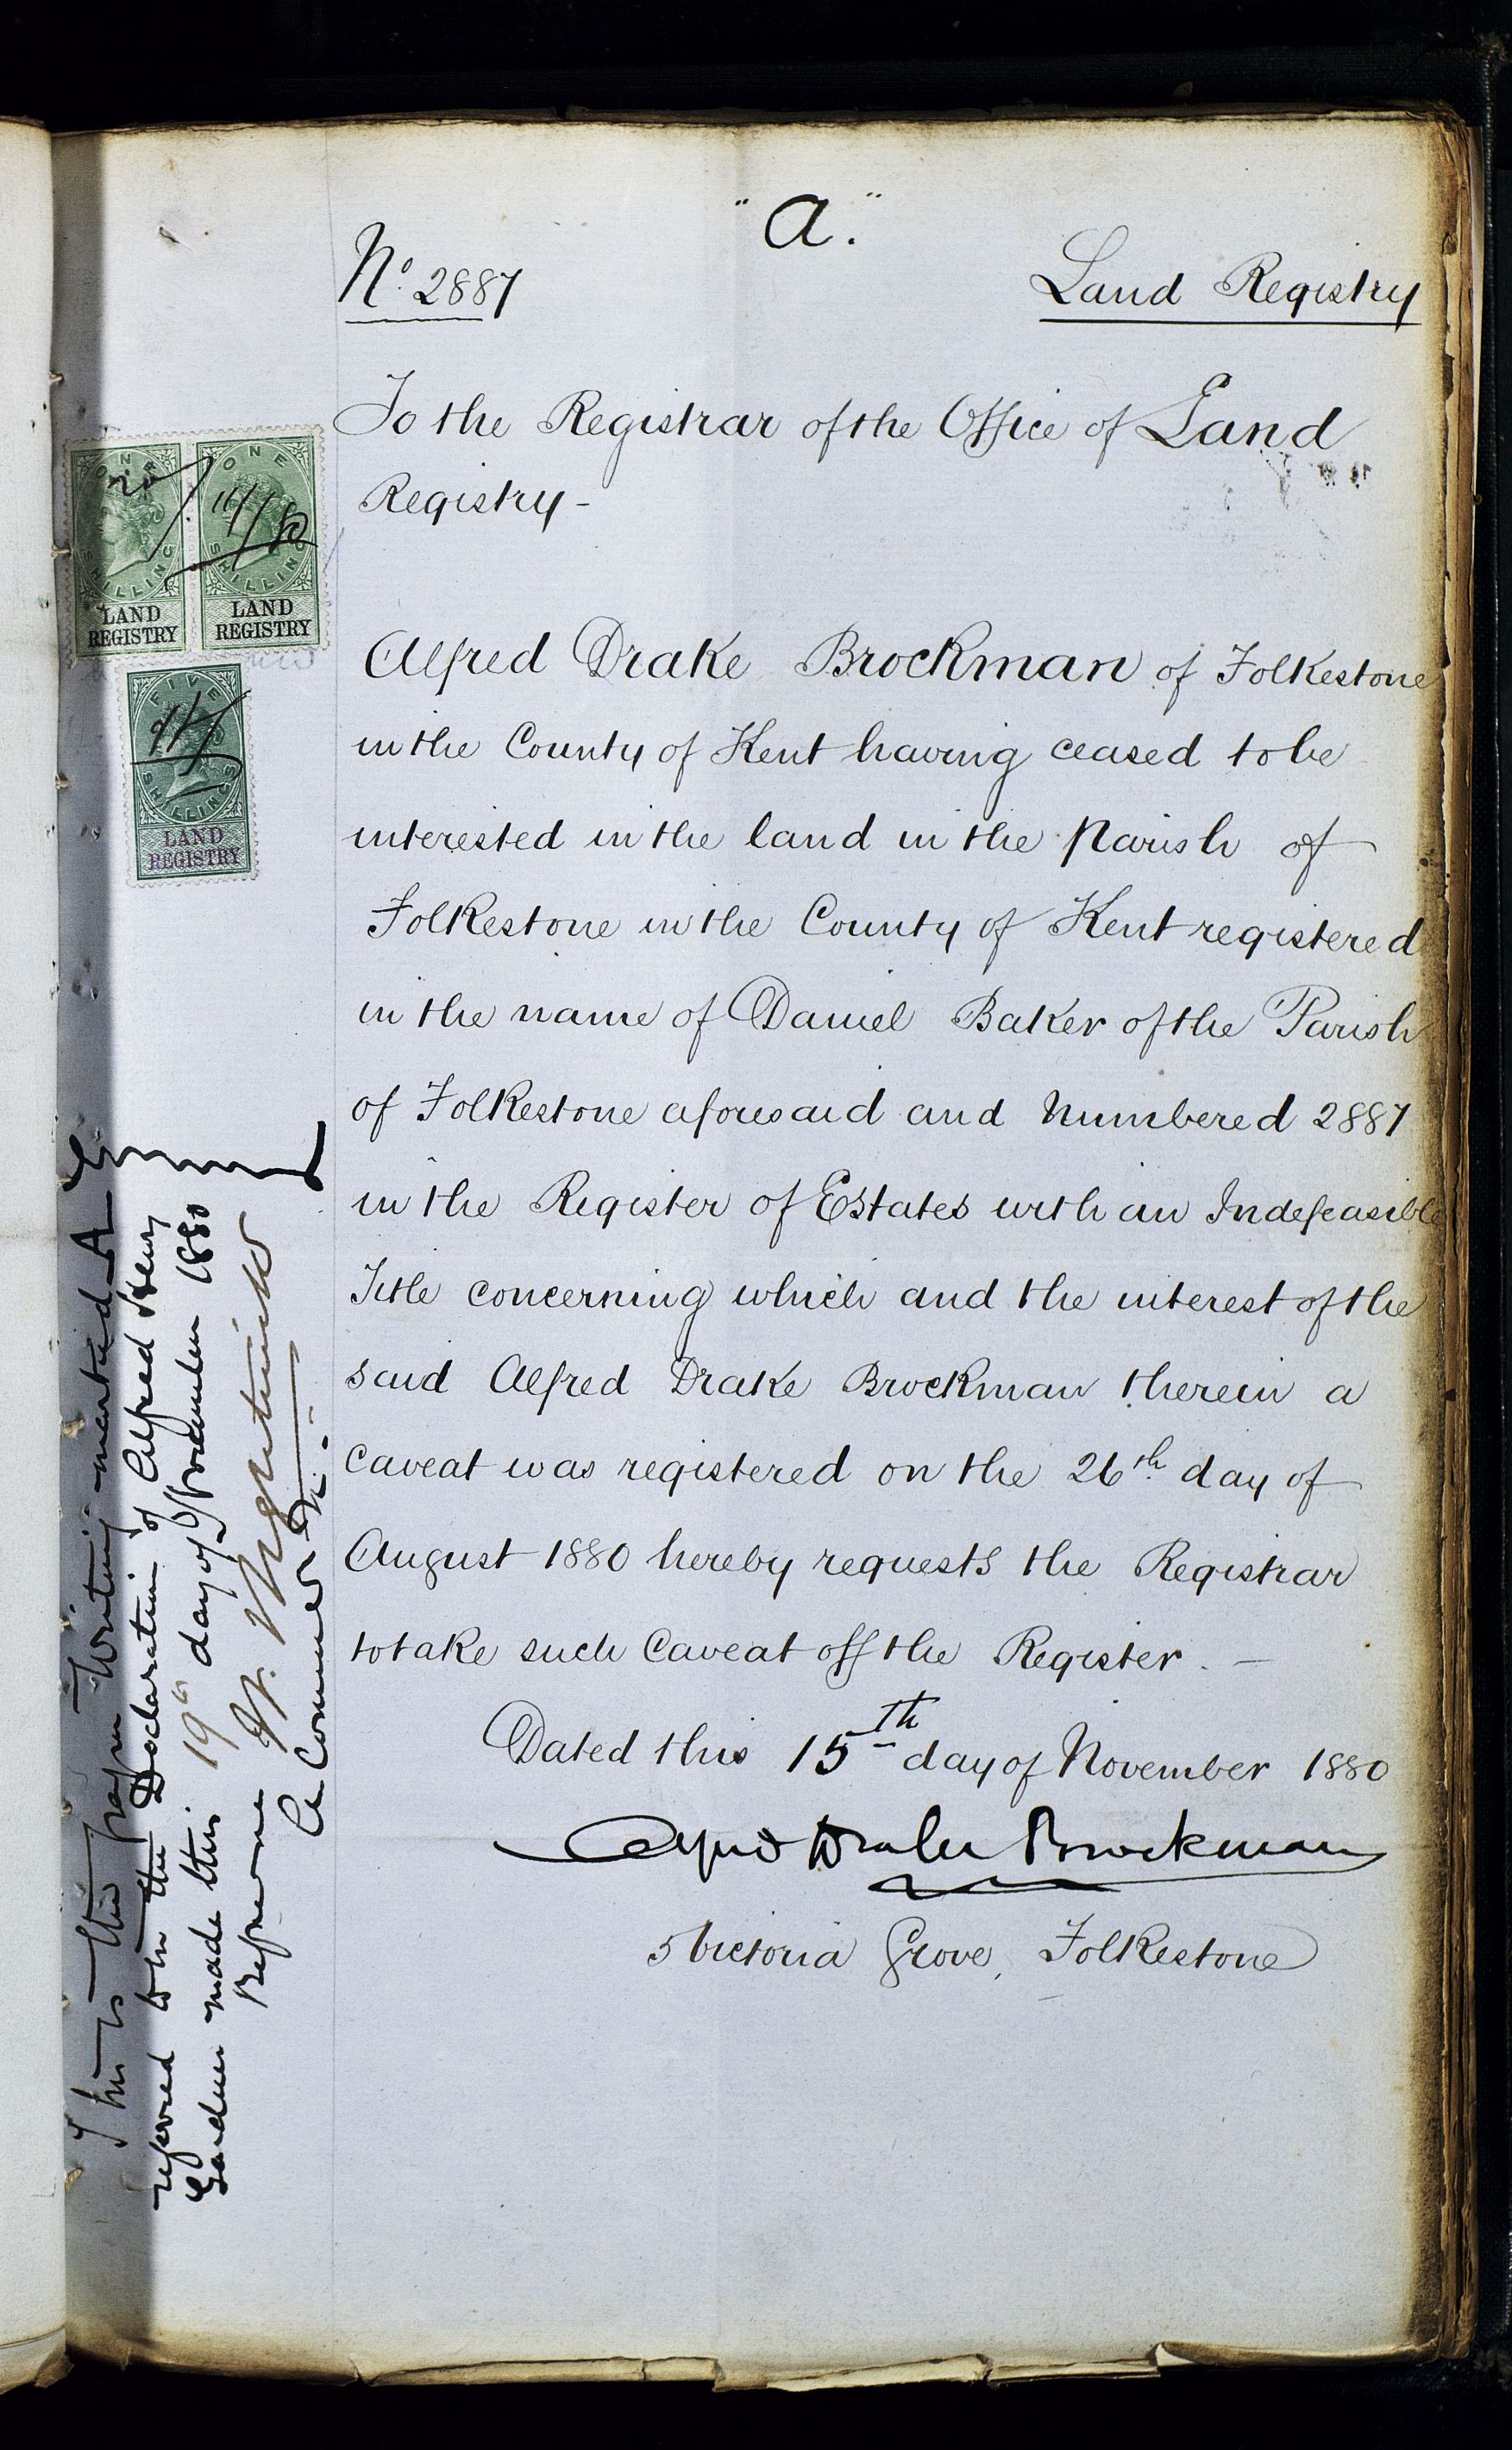 "A."
No. 2887
Land Registry
To the Registrar of the Office of Land
Registry -
Alfred Drake Brockman of Folkestone
in the County of Kent having ceased to be
interested in the land in the Parish of
Folkestone in the County of Kent registered
in the name of Daniel Baker of the Parish
of Folkestone aforesaid and numbered 2887
in the Register of Estates with an Indefeasible
Title concerning which and the interest of the
said Alfred Drake Brockman therein a
caveat was registered on the 26th day of
August 1880 hereby requests the Registrar
to take such Caveat off the Register. -
Dated this 15th day of November 1880
Alfred Drake Brockman
5 Victoria Grove, Folkestone
ONE SHILLING
LAND
REGISTRY
ONE SHILLING
LAND
REGISTRY
FIVE SHILLINGS
LAND
REGISTRY
This is the paper Writing marked A
referred to in the Declaration of Alfred Henry
Gardner made this 19th day of November 1880
Before me
A Commer &c.